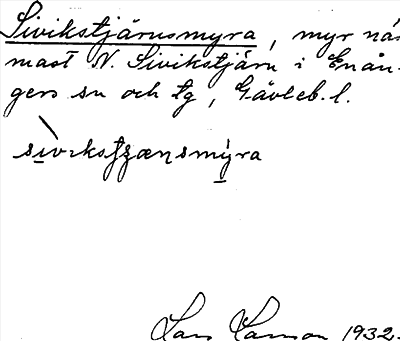 Sivikstjärnsmyra, myr när-
mast N. Sivikstjärn i Enån-
gers sn och tg, Gävleb. l.
sivikstjænsmyra
1932.